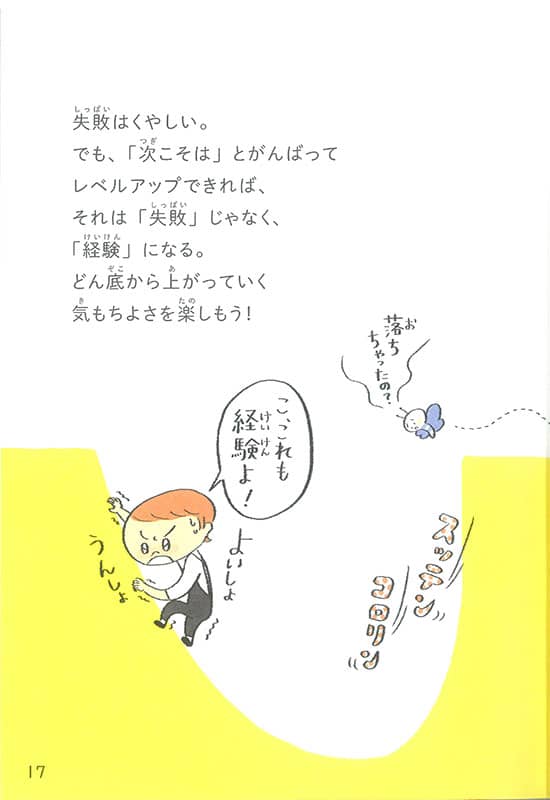 失敗はくやしい。
でも、「次こそは」とがんばって
レベルアップできれば、
それは「失敗」じゃなく、
「経験」になる。
どん底から上がっていく
気もちよさを楽しもう!
落ち
ちゃったの?
こ、これも
経験よ!
うんしょ
よいしょ
スッテン
コロリン
17